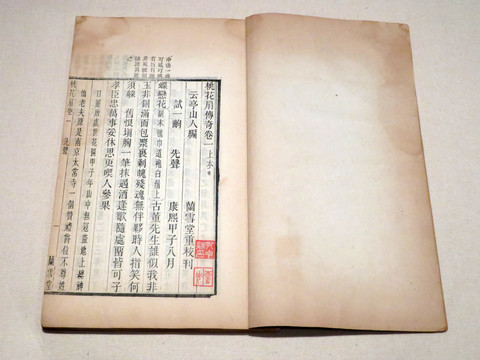 桃花扇傳奇卷一上本
云亭山人編 蘭雪堂重校刊
試一齣 先聲 康熙甲子八月
蝶戀花 副末氈巾道袍白鬚上 古董先生誰似我非
玉非銅滿面包漿裹剩魄殘魂無伴夥時人指笑何
須躲 舊恨塡胸一筆抹遇酒逢歌隨處留皆可子
孝臣忠萬事妥休思更喫人參果
日麗唐虞世花開甲子年山中無寇盜地上總神
仙老夫原是南京太常寺一個贊禮爵位不尊姓
桃花扇卷一 先聲 一 蘭雪堂